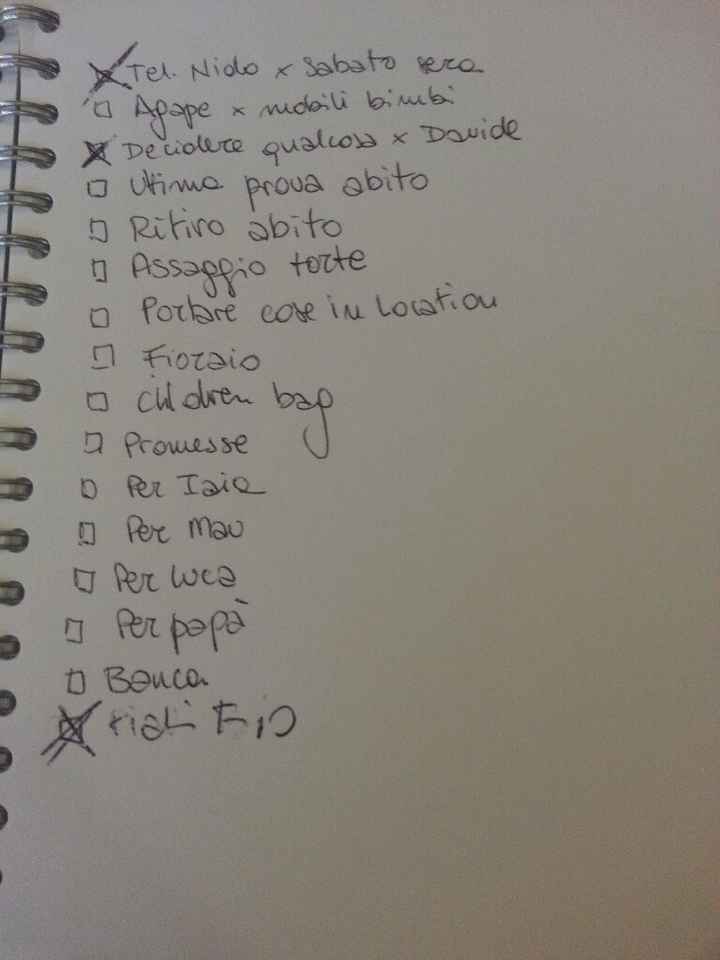 Tel. Nido x sabato sera
Agape x mobili bimbi
Decidere qualcosa x Davide
Ultima prova abito
Ritiro abito
Assaggio torte
Portare cose in location
Fioraio
Children bag
Promesse
Per Iaia
Per Mau
Per Luca
Per papà
Banca